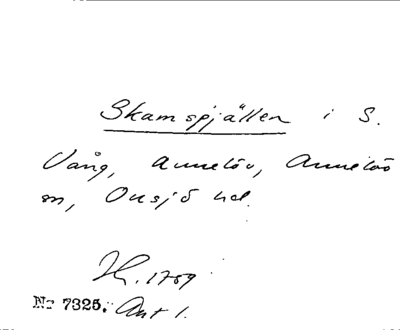 Skamspjällen i S.
Vång, Annelöv, Annelövs
sn, Onsjö hd.
H. 1759
No 7325. Akt 1.